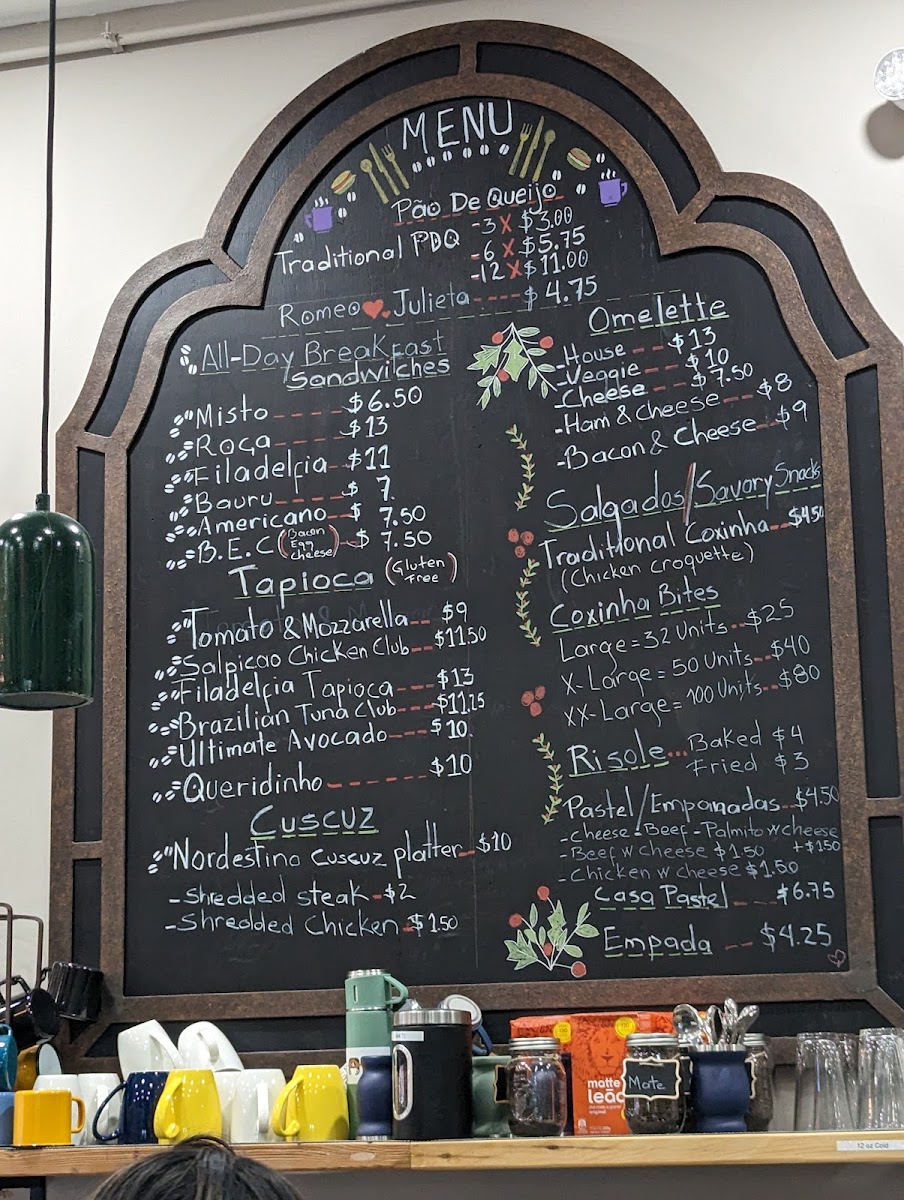 MENU
Pão De Queijo
Traditional PDQ
-3 X $3.00
-6 X $5.75
-12 X $11.00
Romeo Julieta---- $4.75
All-Day Breakfast
Sandwiches
Misto ---- $6.50
Roça ---- $13
Filadelfia -- $11
Bauru ---- $7.
Americano -- $7.50
B.E.C (Bacon Egg Cheese) - $7.50
Tapioca (Gluten Free)
Tomato & Mozzarella -- $9
Salpicao Chicken Club -- $11.50
Filadelfia Tapioca --- $13
Brazilian Tuna Club --- $11.25
Ultimate Avocado --- $10.
Queridinho ------ $10
Cuscuz
Nordestino cuscuz platter -- $10
-Shredded steak - $2
-Shredded Chicken - $1.50
Omelette
-House -- $13
-Veggie -- $10
-Cheese --- $7.50
-Ham & Cheese -- $8
-Bacon & Cheese -- $9
Salgados/Savory Snacks
Traditional Coxinha -- $4.50
(Chicken croquette)
Coxinha Bites
Large = 32 Units -- $25
X-Large = 50 Units -- $40
XX-Large = 100 Units -- $80
Risole... Baked $4
Fried $3
Pastel/Empanadas -- $4.50
-cheese -Beef -Palmito w cheese
+$1.50
-Beef w cheese $1.50
-Chicken w cheese $1.50
Casa Pastel --- $6.75
Empada -- $4.25
matte
leão
Mate
12 oz Cold